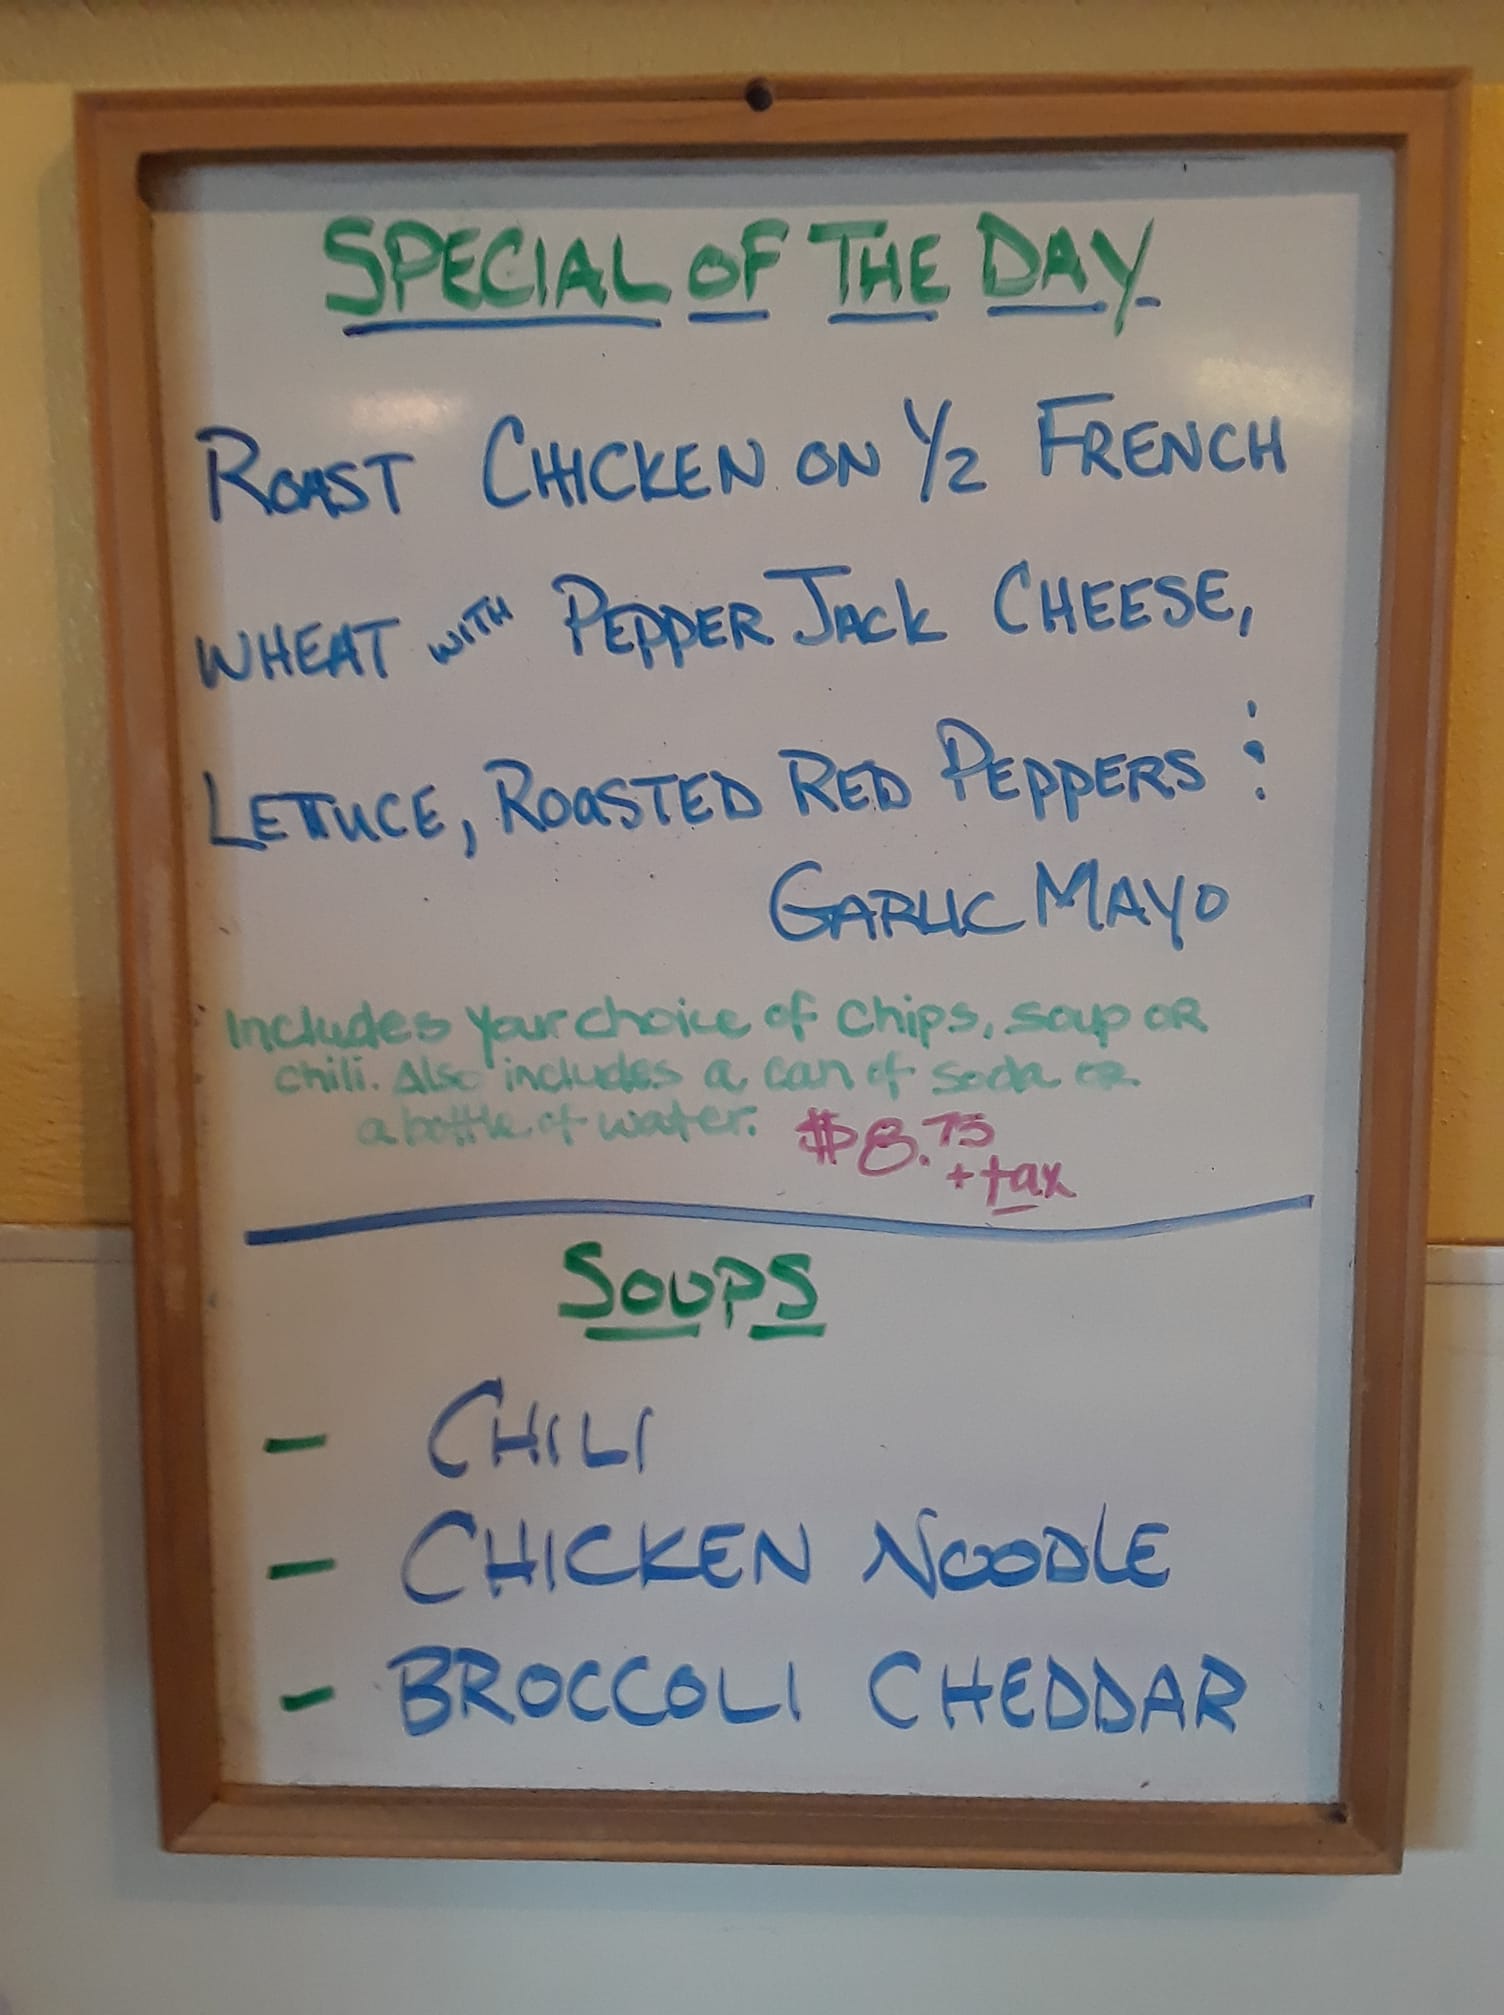 SPECIAL OF THE DAY
ROAST CHICKEN ON 1/2 FRENCH
WHEAT WITH PEPPER JACK CHEESE,
LETTUCE, ROASTED RED PEPPERS &
GARLIC MAYO
Includes your choice of chips, soup or
chili. Also includes a can of soda or
a bottle of water. $8.75
+ tax
SOUPS
- CHILI
- CHICKEN NOODLE
- BROCCOLI CHEDDAR